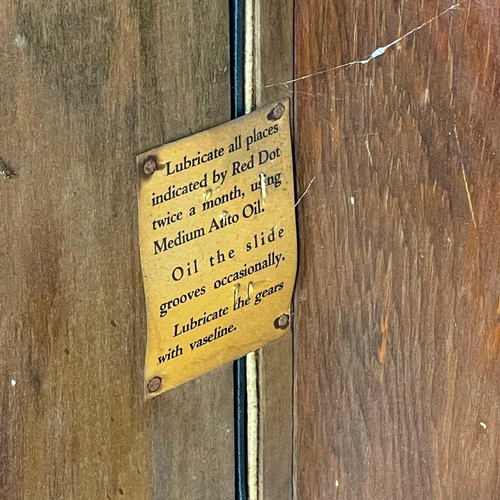 Lubricate all places
indicated by Red Dot
twice a month, using
Medium Auto Oil.
Oil the slide
grooves occasionally.
Lubricate the gears
with vaseline.